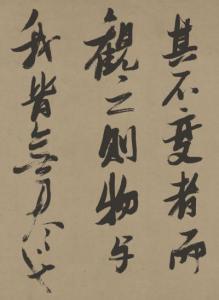 其不變者而
觀之則物与
我皆無盡也